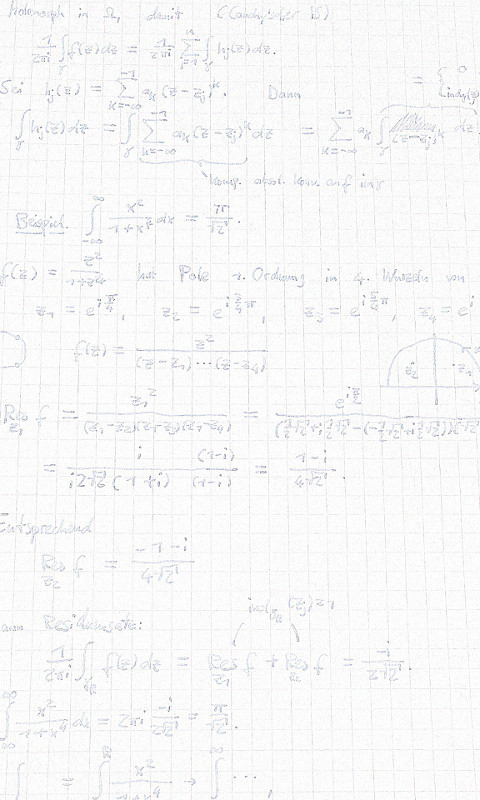 holomorph in Ω, damit (Cauchyscher IS)
1/2πi ∫_γ f(z)dz = 1/2πi Σ_{j=1}^n ∫_γ h_j(z)dz.
Sei h_j(z) = Σ_{k=-∞}^{-1} a_k (z-z_j)^k. Dann = { 0
∫_γ h_j(z)dz = ∫_γ Σ_{k=-∞}^{-1} a_k (z-z_j)^k dz = Σ_{k=-∞}^{-1} a_k ∫_γ (z-z_j)^k dz
komp. absol. konv. auf im γ
Beispiel. ∫_{-∞}^{∞} x²/(1+x⁴) dx = π/√2.
f(z) = z²/(1+z⁴) hat Pole 1. Ordnung in 4. Wurzeln von
z_1 = e^{iπ/4}, z_2 = e^{i3/4π}, z_3 = e^{i5/4π}, z_4 = e^i
f(z) = z²/((z-z_1)···(z-z_4))
z_2 z_1
Res_{z_1} f = z_1²/((z_1-z_2)(z_1-z_3)(z_1-z_4)) = e^{iπ/2}
= i/(i2√2(1+i)) (1-i)/(1-i) = (1-i)/(4√2).
Entsprechend
Res_{z_2} f = (-1-i)/(4√2)
Residuensatz: ind_{γ_R}(z_j)=1
1/2πi ∫_{γ_R} f(z)dz = Res_{z_1} f + Res_{z_2} f = -i/(2√2).
∫_{-∞}^{∞} x²/(1+x⁴) dx = 2πi -i/(2√2) = π/√2.
∫ = ∫ x²/(1+x⁴) → ∫^∞ ··· ,